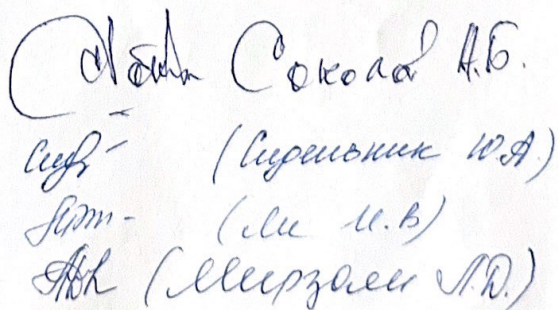 Соколов А.Б.
(Сидельник Ю.А)
(Ли И.В)
(Мирзоли Л.D.)